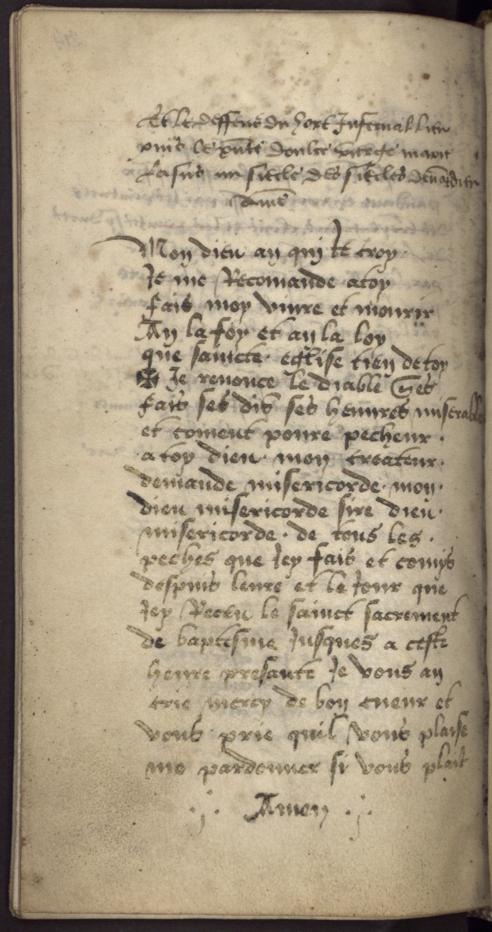 Et le deffens du hort Infernal lieu
puis doulce vierge marie
siecle des siecles
Amen
Mon dieu an qui Je croy
Je me Recomande a toy
fais moy vivre et mourir
An la foy et an la loy
que saincte eglise tien de toy
✠ Je renonce le diable Ses
fais ses dis ses heuvres miserables
et coment povre pecheur
a toy dieu mon createur
demande misericorde mon
dieu misericorde sire dieu
misericorde de tous les
peches que Jey fais et comis
despuis leure et le Jour que
Jey Receu le sainct sacrement
de baptesme Jusques a ceste
heure presante Je vous an
crie mercy de bon cueur et
vous prie quil vous plaise
me pardonner si vous plait
Amen